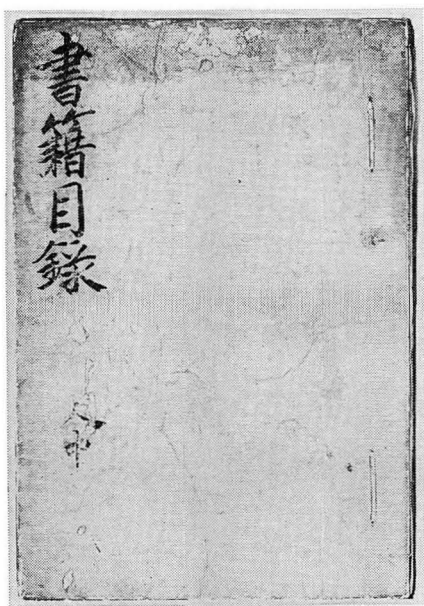 書籍目錄